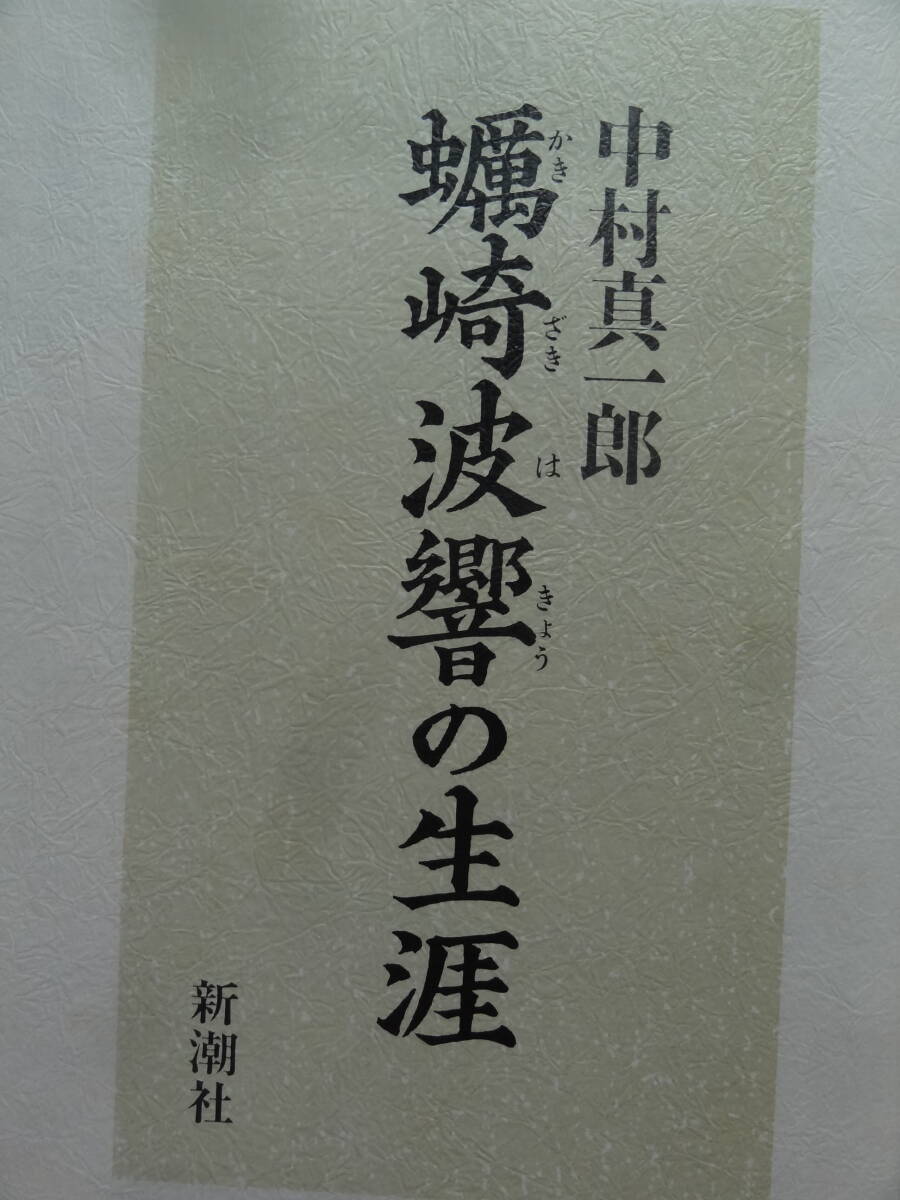 中村真一郎
蠣崎波響の生涯
かき
ざき
は
きょう
新潮社